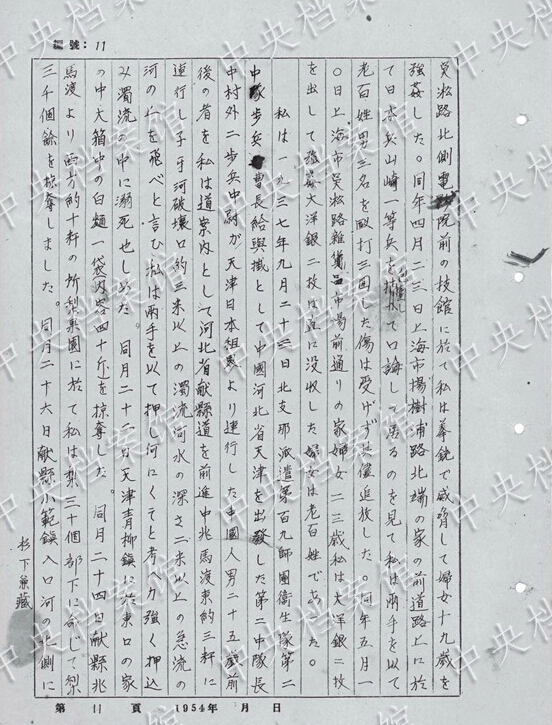 編號: 11
呉淞路北側電影院前の技館に於て私は拳銃で威脅して婦女十九歳を
強姦した。同年四月二三日上海市場樹浦路北端の家の前道路上に於
て日本兵山崎一等兵を 口論して居るのを見て私は両手を以て
老百姓男三名を毆打三回した傷は受けず 追放した。同年五月一
〇日上海市呉淞路雑貨品市場前通りの家婦女二三歳私は大洋銀二枚
を出して強姦大洋銀二枚は直に没収した婦女は老百姓であった。
私は一九三七年九月二十三日北支那派遣第百九師團衛生隊第二
中隊歩兵曹長給與掛として中國河北省天津を出發した第二中隊長
中村外二歩兵中尉が天津日本租界より連行した中國人男二十五歳前
後の者を私は道案内として河北省献縣道を前進中北馬渡東約三粁に
連行し子牙河破壊口約三米以上の濁流河水の深さ二米以上の急流の
河の を飛べと言ひ私は両手を以て押し何にくそと考へ力強く押込
み濁流の中に溺死せしめた。同月二十二日天津青柳鎮に於東口の家
の中大箱中の白麺一袋(内容四十斤)を掠奪した。同月二十四日献縣北
馬渡より西方約十粁の所梨菓園に於て私は梨三十個部下に命じて梨
三千個餘を掠奪しました。同月二十六日献縣小範鎮入口河の北側に
杉下兼蔵
第 11 頁 1954年 月 日
中央档案馆